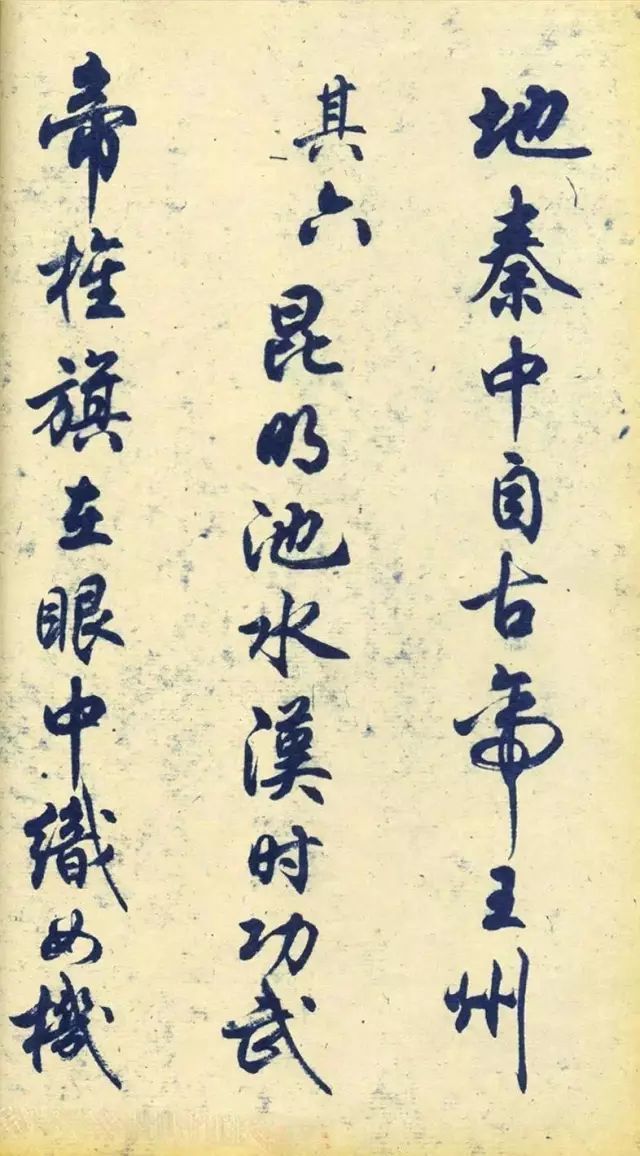 地秦中自古帝王州
其六 昆明池水漢时功武
帝旌旗在眼中織女機